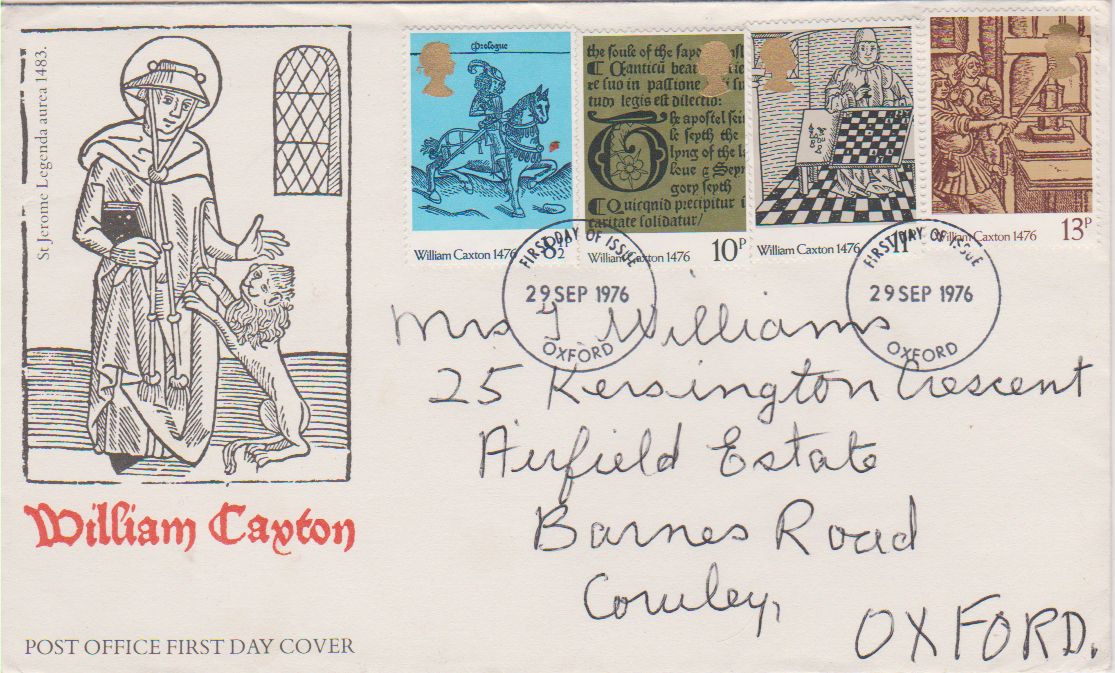 St Jerome Legenda aurea 1483.
William Caxton
POST OFFICE FIRST DAY COVER
Prologue
William Caxton 1476 8½P
the soule of the sape
Canticū beat
re suo in passione su
tudo legis est dilectio:
apostel sei
le septh the
lyng of the la
loue & Sepn
gory septh
Quicquid precipitur i
caritate solidatur/
William Caxton 1476 10P
William Caxton 1476 11P
William Caxton 1476 13P
FIRST DAY OF ISSUE
29 SEP 1976
OXFORD
FIRST DAY OF ISSUE
29 SEP 1976
OXFORD
Mrs Williams
25 Kersington Crescent
Airfield Estate
Barnes Road
Cowley,
OXFORD.